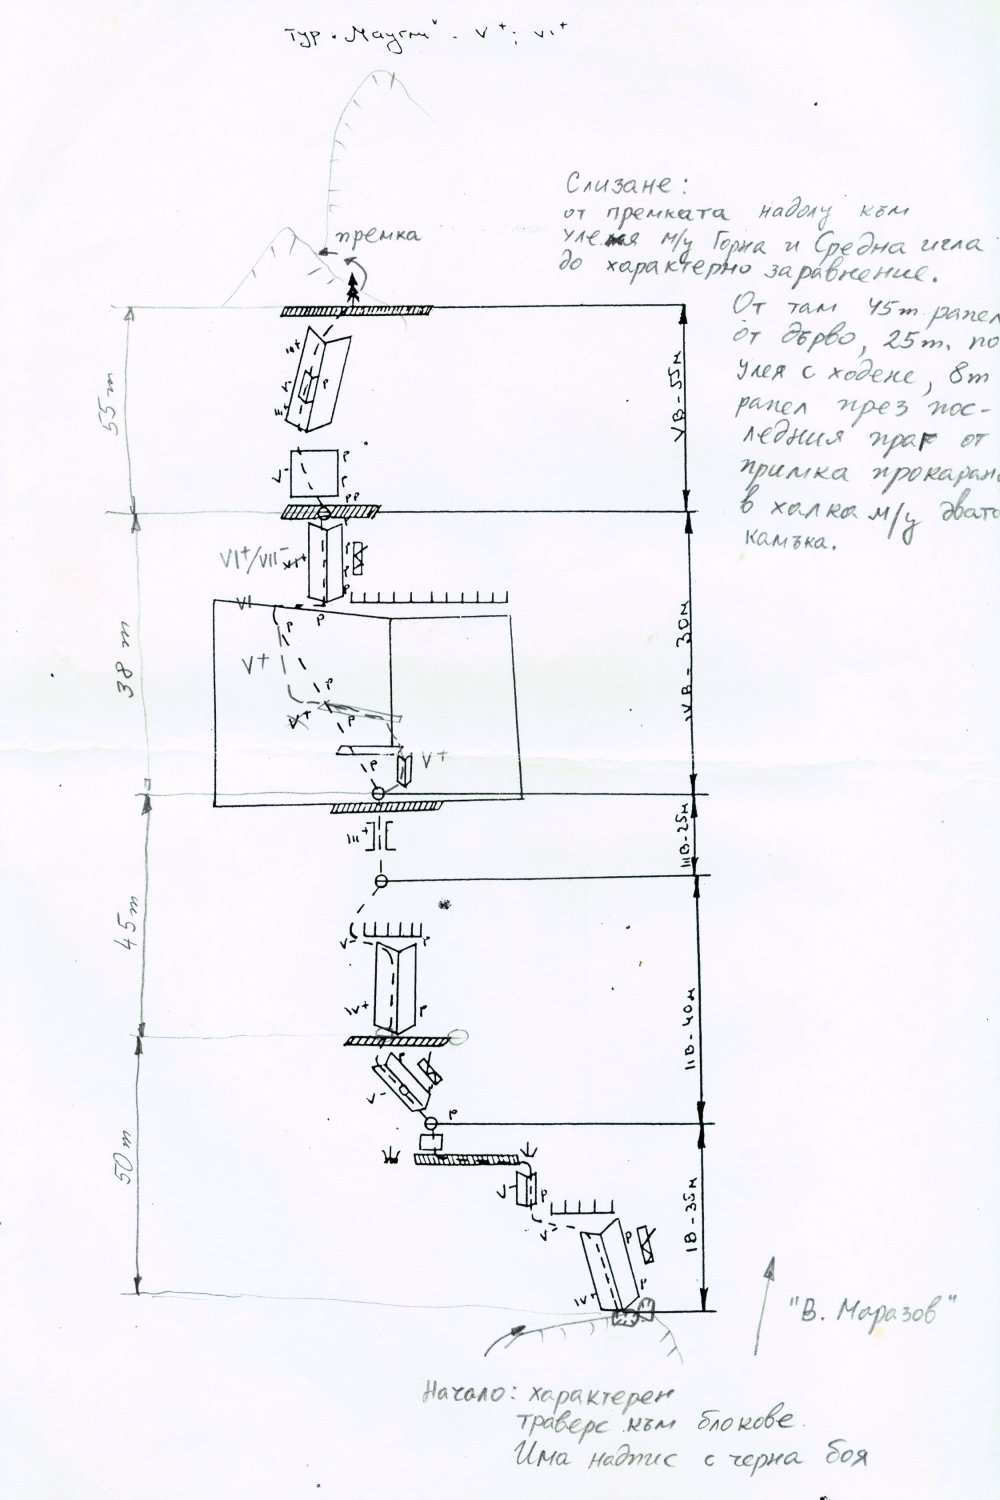 Тур "Маугли" - V+; VI+
Слизане:
от премката надолу към
улея м/у Горна и Средна игла
до характерно заравнение.
премка
От там 45m рапел
от дърво, 25m. по
улея с ходене, 8m
рапел през пос-
ледния праг от
примка прокарана
в халка м/у двата
камъка.
55 m
VВ-55м
III+
V-
P
III+
V-
P
P
PP
VI+/VII-
P
P
P
VI
P
P
V+
38 m
IVВ - 30м
P
V+
P
V+
P
III+
IIIВ-25м
45 m
V-
P
IV+
P
IIВ-40м
P
V-
P
50 m
V-
P
V-
P
P
IV+
IВ-35м
"В. Маразов"
Начало: характерен
траверс към блокове.
Има надпис с черна боя